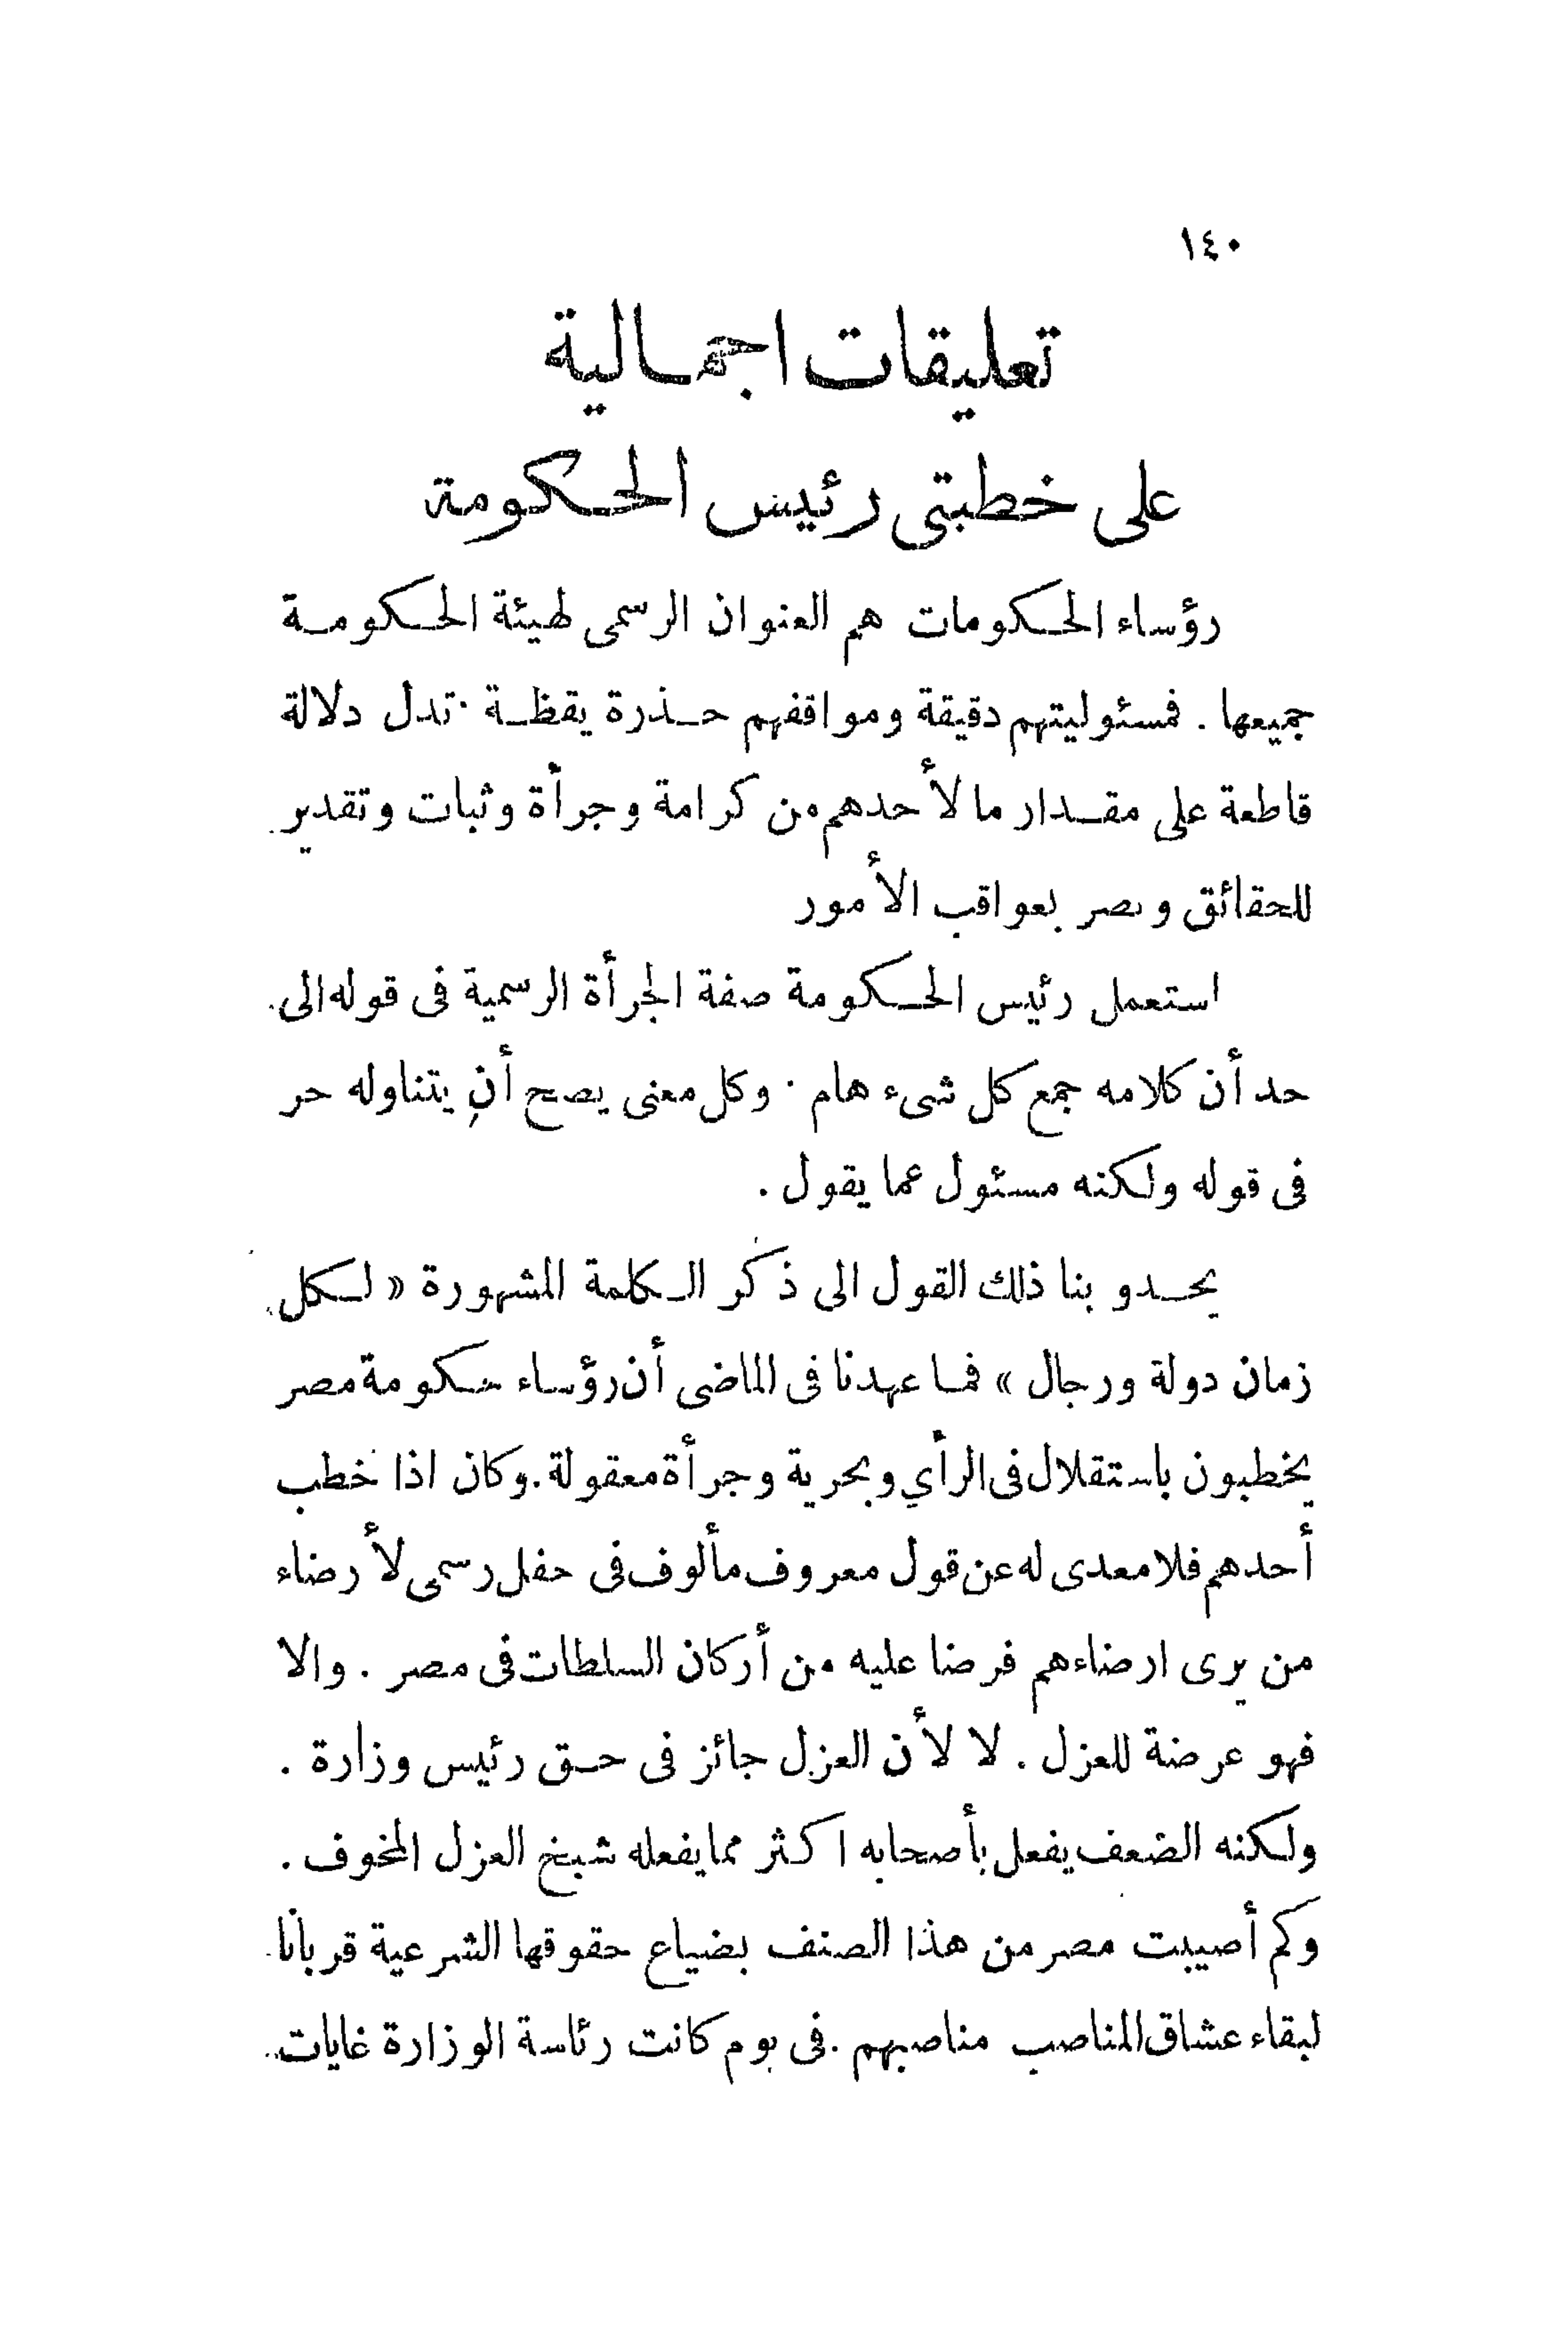 ١٤٠
تعليقات اجمالية
على خطبتى رئيس الحكومة
رؤساء الحكومات هم العنوان الرسمى لهيئة الحكومة
جميعها . فمسئوليتهم دقيقة ومواقفهم حذرة يقظة . تدل دلالة
قاطعة على مقدار ما لأحدهم من كرامة وجرأة وثبات وتقدير
للحقائق وبصر بعواقب الأمور
استعمل رئيس الحكومة صفة الجرأة الرسمية فى قوله الى
حد أن كلامه جمع كل شىء هام . وكل معنى يصح أن يتناوله حر
فى قوله ولكنه مسئول عما يقول .
يحدو بنا ذلك القول الى ذكر الكلمة المشهورة « لكل
زمان دولة ورجال » فما عهدنا فى الماضى أن رؤساء حكومة مصر
يخطبون باستقلال فى الرأي وبحرية وجرأة معقولة . وكان اذا خطب
أحدهم فلا معدى له عن قول معروف مألوف فى حفل رسمى لأرضاء
من يرى ارضاءهم فرضا عليه من أركان السلطات فى مصر . والا
فهو عرضة للعزل . لا لأن العزل جائز فى حق رئيس وزارة .
ولكنه الضعف يفعل بأصحابه اكثر مما يفعله شبخ العزل المخوف .
وكم أصيبت مصر من هذا الصنف بضياع حقوقها الشرعية قربانا
لبقاء عشاق المناصب مناصبهم . فى يوم كانت رئاسة الوزارة غايات